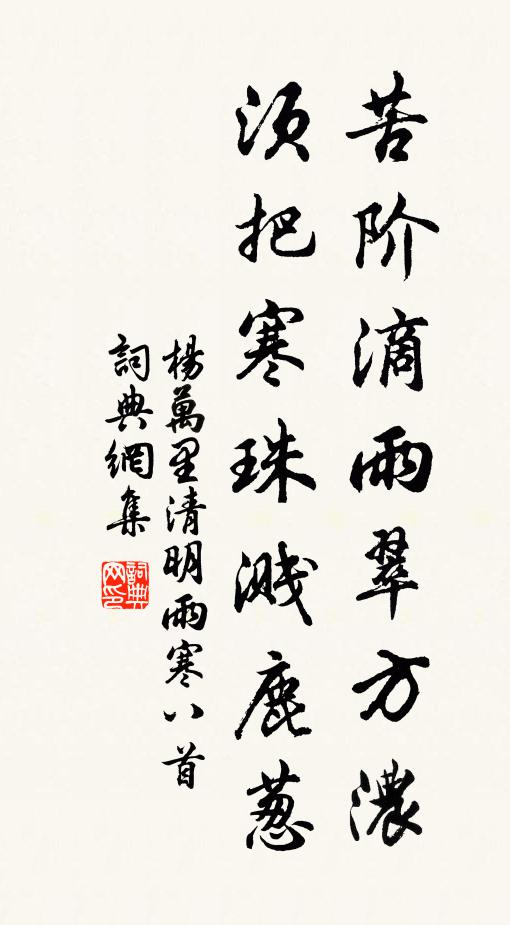 苦阶滴雨翠方濃
须把寒珠溅鹿葱
楊萬里清明雨寒八首
詞典網集
詞典网印